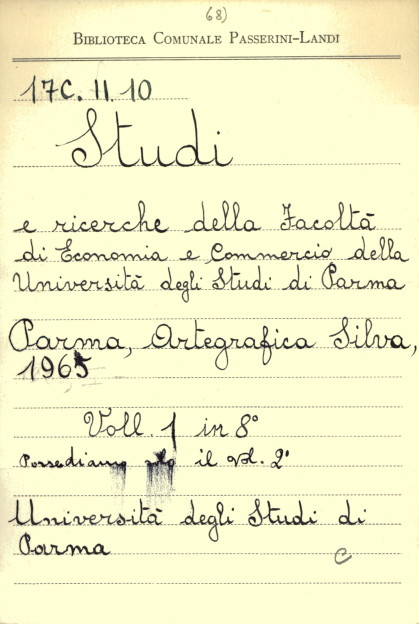 68)
BIBLIOTECA COMUNALE PASSERINI-LANDI
17C. II. 10
Studi
e ricerche della Facoltà
di Economia e Commercio della
Università degli Studi di Parma
Parma, Artegrafica Silva,
1965
Voll. 1 in 8°
Possediamo solo il vol. 2°
Università degli Studi di
Parma
C